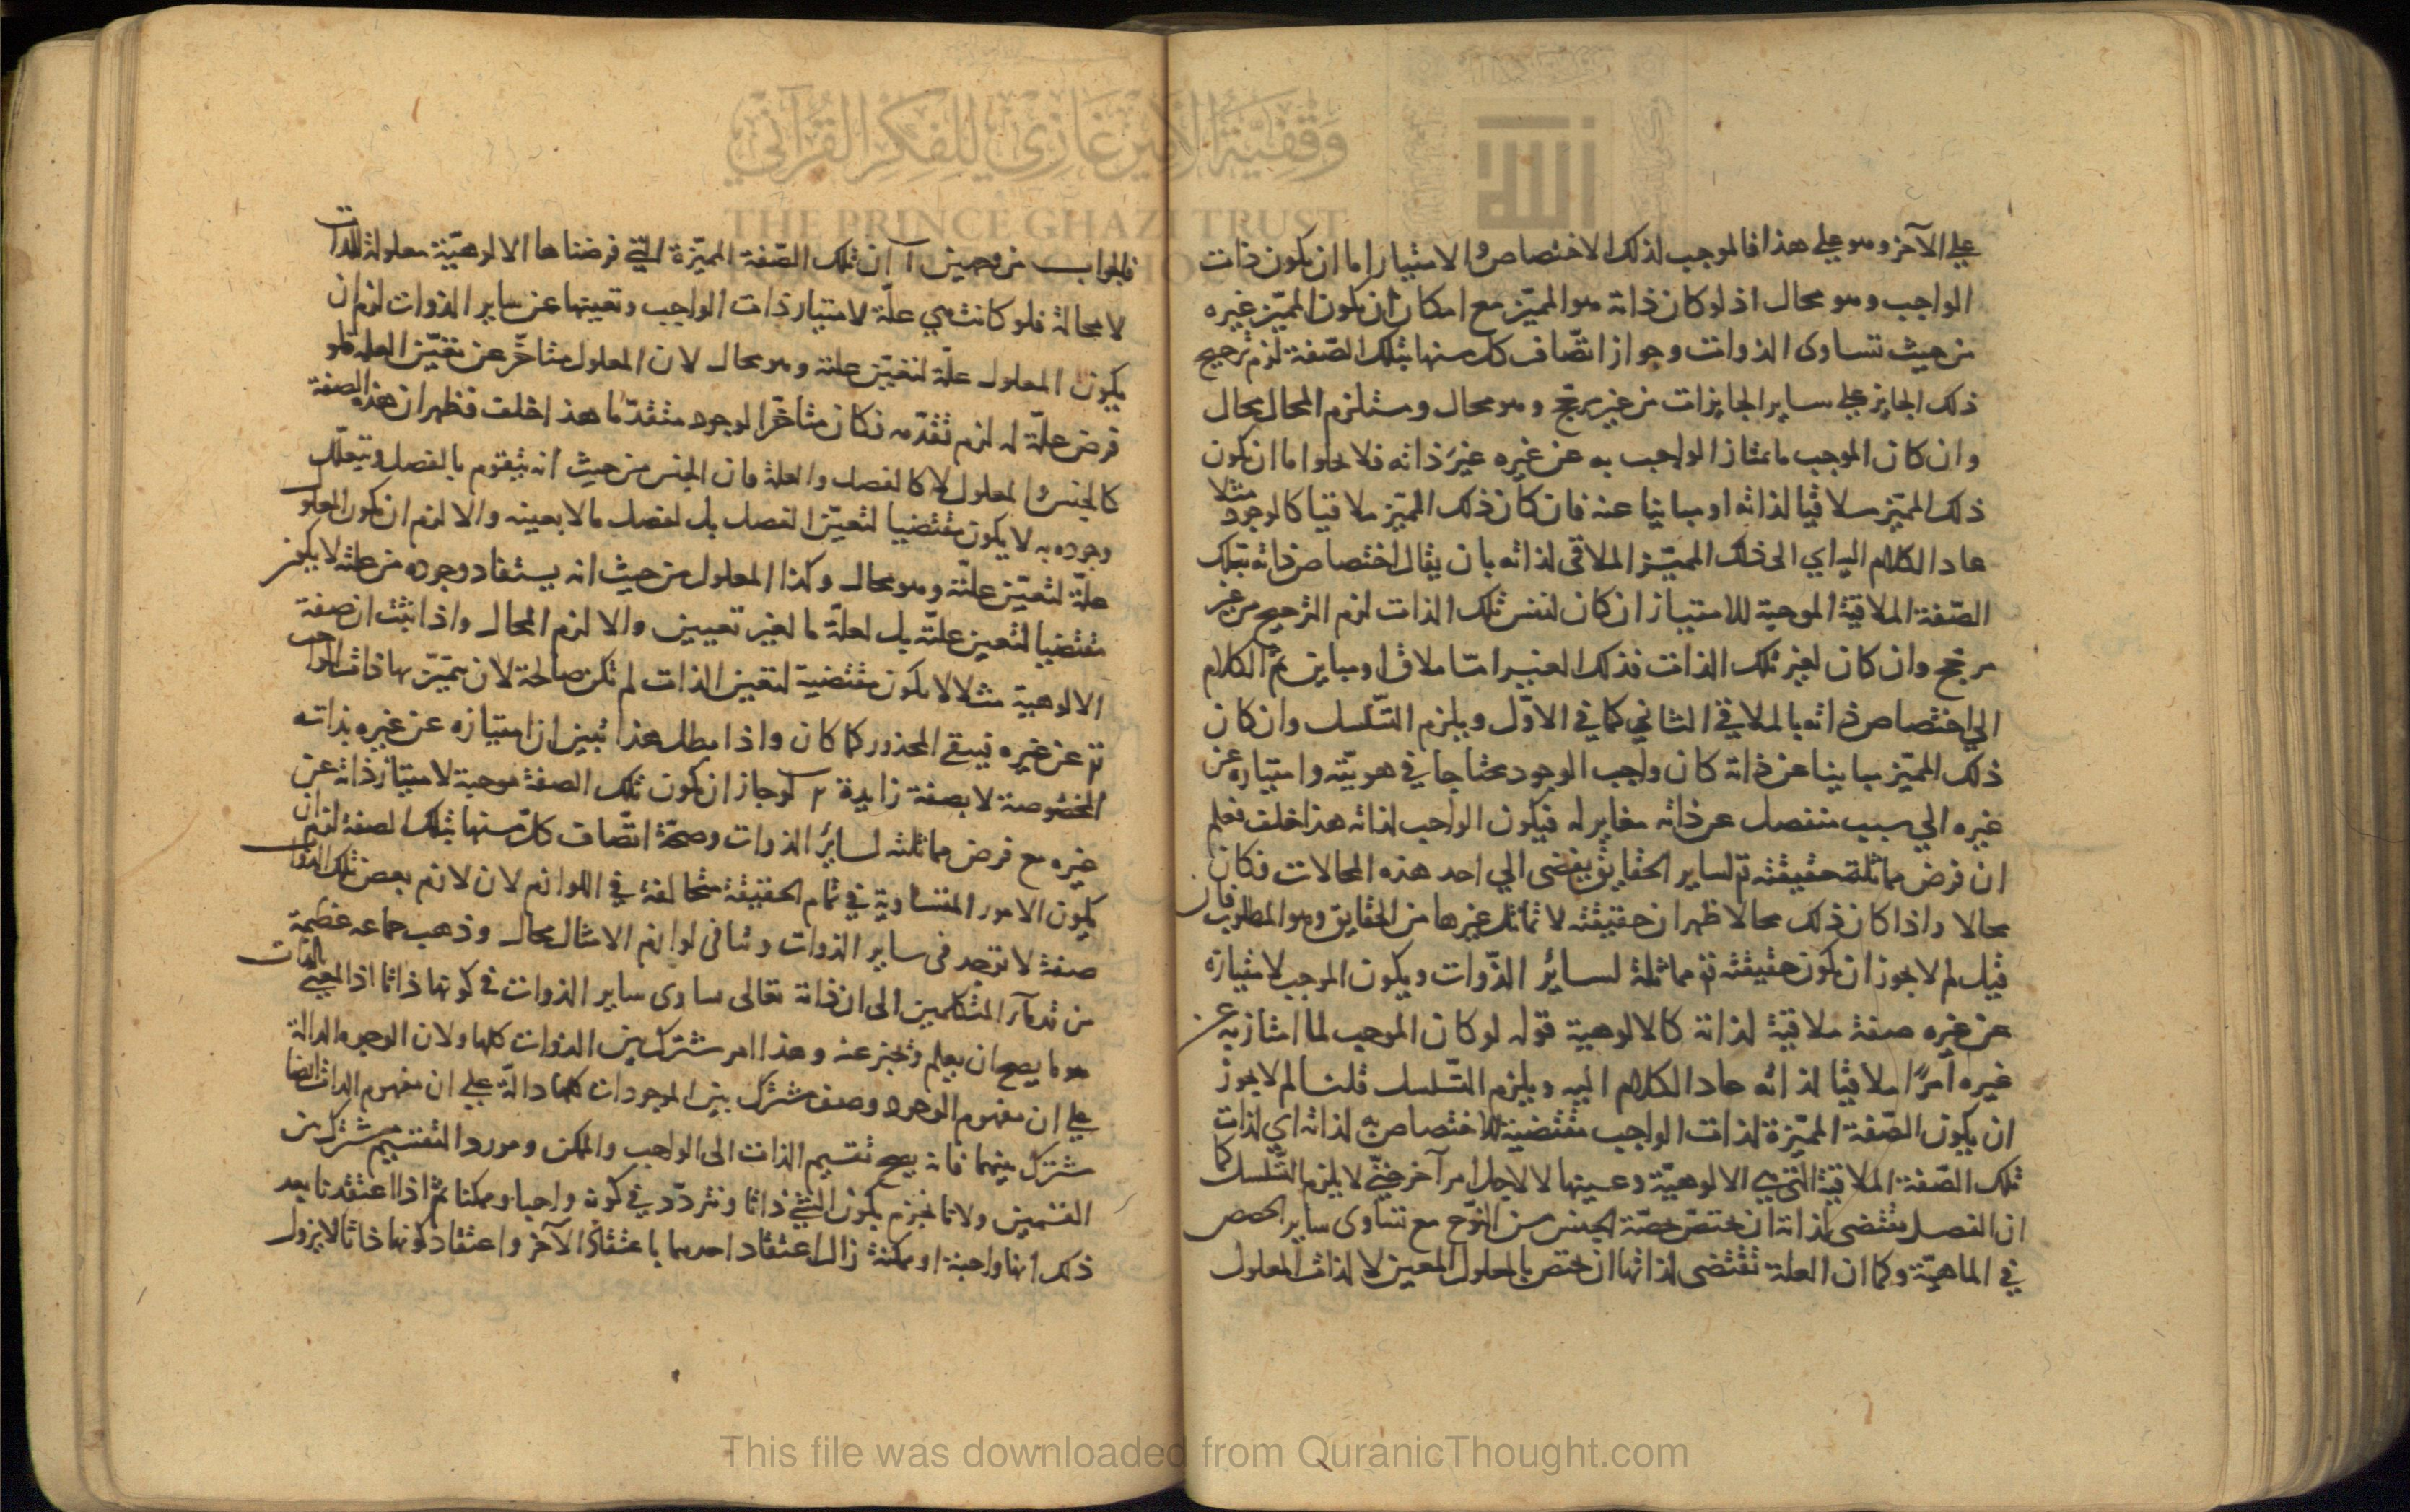 على الآخر وهو على هذا فالموجب لذلك الاختصاص والامتياز اما ان يكون ذات
الواجب وهو محال اذ لو كان ذاته هو المميّز مع امكان ان يكون المميّز غيره
من حيث تساوى الذوات وجواز اتّصاف كل منها بتلك الصّفة لزم ترجيح
ذلك الجايز على ساير الجايزات من غير مرجّح وهو محال ومستلزم المحال محال
وان كان الموجب ما يمتاز الواجب به عن غيره غيرَ ذاته فلا يخلوا اما ان يكون
ذلك المميّز ملاقيا لذاته او مباينا عنه فان كان ذلك المميّز ملاقيا كالوجود مثلا
عاد الكلام اليه اي الى ذلك المميّز الملاقى لذاته بان يقال اختصاص ذاته بتلك
الصّفة الملاقية الموجبة للامتياز ان كان لنفس تلك الذات لزم الترجيح من غير
مرجّح وان كان لغير تلك الذات فذلك الغير امّا ملاق او مباين ثمّ الكلام
الى اختصاص ذاته بالملاقي الثاني كما في الاوّل ويلزم التّسلسل وان كان
ذلك المميّز مباينا عن ذاته كان واجب الوجود محتاجا في هويّته وامتيازه عن
غيره الي سبب منفصل عن ذاته مغاير له فيكون الواجب لذاته هذا خلف فعلم
ان فرض مماثلة حقيقته تم لساير الحقايق يفضى الي احد هذه المحالات فكان
محالا واذا كان ذلك محالا ظهر ان حقيقته لا تماثل غيرها من الحقايق وهو المطلوب فان
قيل لم لا يجوز ان يكون حقيقته تم مماثلة لسائر الذّوات ويكون الموجب لامتيازه
عن غيره صفة ملاقية لذاته كالالوهية قوله لو كان الموجب لما امتاز به عن
غيره امرًا ملاقيا لذاته عاد الكلام اليه ويلزم التّسلسل قلنا لم لا يجوز
ان يكون الصّفة المميّزة لذات الواجب مقتضية للاختصاص به لذاته اي لذات
تلك الصّفة الملاقية التي هي الالوهيّة وعينها لا لاجل امر آخر حتّى لا يلزم التّسلسل كما
ان الفصل يقتضى لذاته ان يختصّ بحصّة الجنس من النّوع مع تساوى ساير الحصص
في الماهيّة وكما ان العلة تقتضى لذاتها ان تختص بالمعلول المعين لا لذات المعلول
فالجواب من وجهين آ ان تلك الصّفة المميّزة التي فرضناها الالوهيّة معلولة للذات
لا محالة فلو كانت هي علّة لامتياز ذات الواجب وتعينها عن ساير الذوات لزم ان
يكون المعلول علّة لتعيّن علته وهو محال لان المعلول متاخّر عن تعيّن العله فلو
فرض علّة له لزم تقدّمه فكان متاخّر الوجود متقدّما هذا خلف فظهر ان هذه الصفة
كالجنس والمعلول لا كالفصل والعلة فان الجنس من حيث انه يتقوم بالفصل ويتعلّل
وجوده به لا يكون مقتضيا لتعيّن الفصل بل لفصل ما لا بعينه والا لزم ان يكون المعلول
علّة لتعيّن علّته وهو محال وكذا المعلول من حيث انه يستفاد وجوده من علته لا يكون
مقتضيا لتعين علّته بل لعلّة ما لغير تعيين والا لزم المحال واذا ثبت ان صفة
الالوهية مثلا لا يكون مقتضية لتعين الذات لم تكن صالحة لان يتميّز بها ذات الواجب
تم عن غيره فيبقى المحذور كما كان واذا بطل هذا تبين ان امتيازه عن غيره بذاته
المخصوصة لا بصفة زايدة ٢ لو جاز ان يكون تلك الصفة موجبة لامتياز ذاته عن
غيره مع فرض مماثلته لسائر الذوات وصحّة اتّصاف كلّ منها بتلك الصفة لزم ان
يكون الامور المتساوية في تمام الحقيقة متخالفة في اللوازم لان لازم بعض تلك الذوات
صفة لا توجد في ساير الذوات وتنافى لوازم الامثال محال وذهب جماعه عظيمة
من قدمآء المتكلمين الى ان ذاته تعالى ساوى ساير الذوات في كونها ذاتا اذ المعنى بالذات
هو ما يصح ان يعلم ويخبر عنه وهذا امر مشترك بين الذوات كلها ولان الوجوه الدالة
على ان مفهوم الوجود وصف مشترك بين الموجودات كلها دالّة على ان مفهوم الذات ايضا
مشترك بينهما فانه يصح تقسيم الذات الى الواجب والممكن ومورد التقسيم مشترك بين
القسمين ولانا نجزم بكون الشئ ذاتا ونتردّد في كونه واجبا وممكنا ثمّ اذا اعتقدنا بعد
ذلك انها واجبة او ممكنة زال اعتقاد احدهما باعتقاد الآخر واعتقاد كونها ذاتا لا يزول
وقفية الأمير غازي للفكر القرآني
THE PRINCE GHAZI TRUST
This file was downloaded from QuranicThought.com